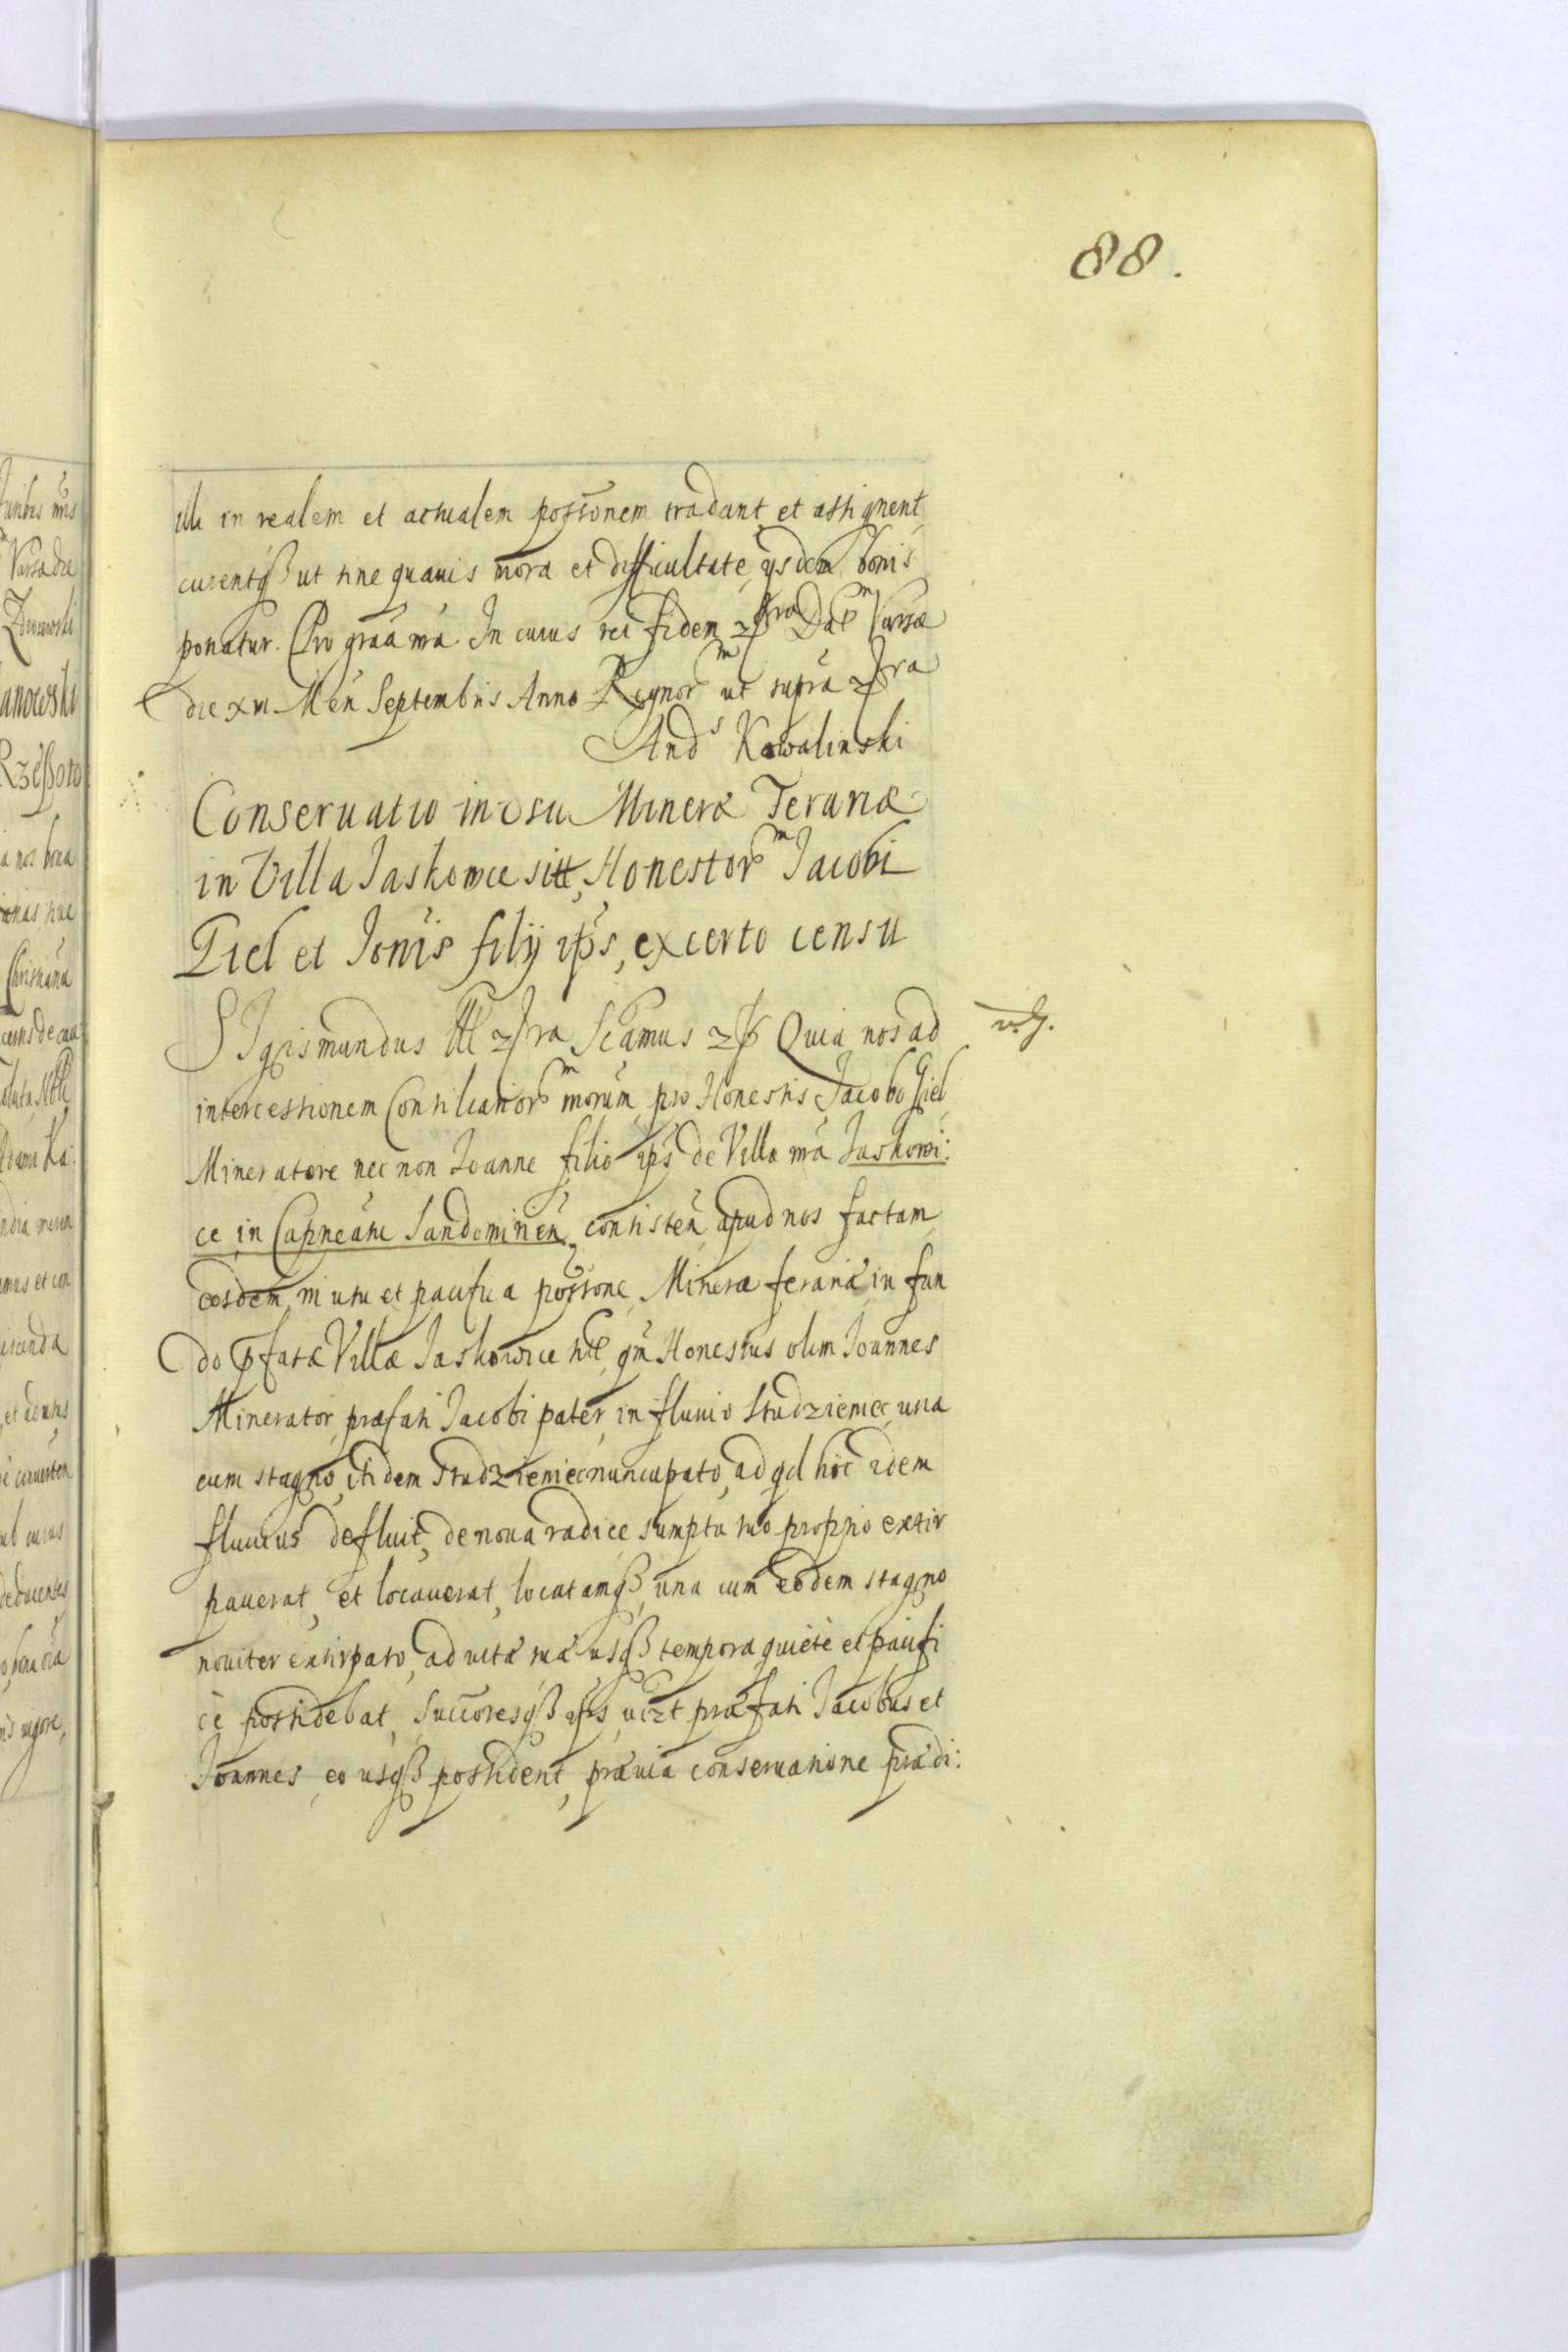 88.
illi in realem et actualem possonem tradant et assignent
curentq3 ut sine quavis mora et difficultate ysdem bonis
ponatur. Pro graã nrã. In cuius rei fidem Dat Varsae
die xvi Mēn Septembris Anno Regnorm ut supra
Ands Kowalinski
Conservatio in usu Minerae Ferariae
in Villa Jaskowice sitt, Honestorm Jacobi
Giel et Jonis filij ips, ex certo censu
SIgismundus III Scāmus Quia nos ad
v. g.
intercessionem Consiliariorm nrorum pro Honestis Jacobo Giel
Mineratore nec non Joanne filio ips de Villa nrã Jaskowi:
ce in Capneatu Sandominēn consistēn apud nos factam
eosdem in usu et pacifica possone Minerae ferariae in fun
do pfatae Villae Jaskowice qm Honestus olim Joannes
Minerator praefati Jacobi pater, in fluvio Studzieniec una
cum stagno, itidem Studzieniec nuncupato, ad qd hoc idem
fluvius defluit, de nova radice sumptu suo proprio extir
paverat, et locaverat, locatamq3 una cum eodem stagno
noviter extirpato, ad vitae suae usq3 tempora quiete et pacifi
ce possidebat, Succoresq3 ips vizt praefati Jacobus et
Joannes eo usq3 possident, praevia conservatione praedi: